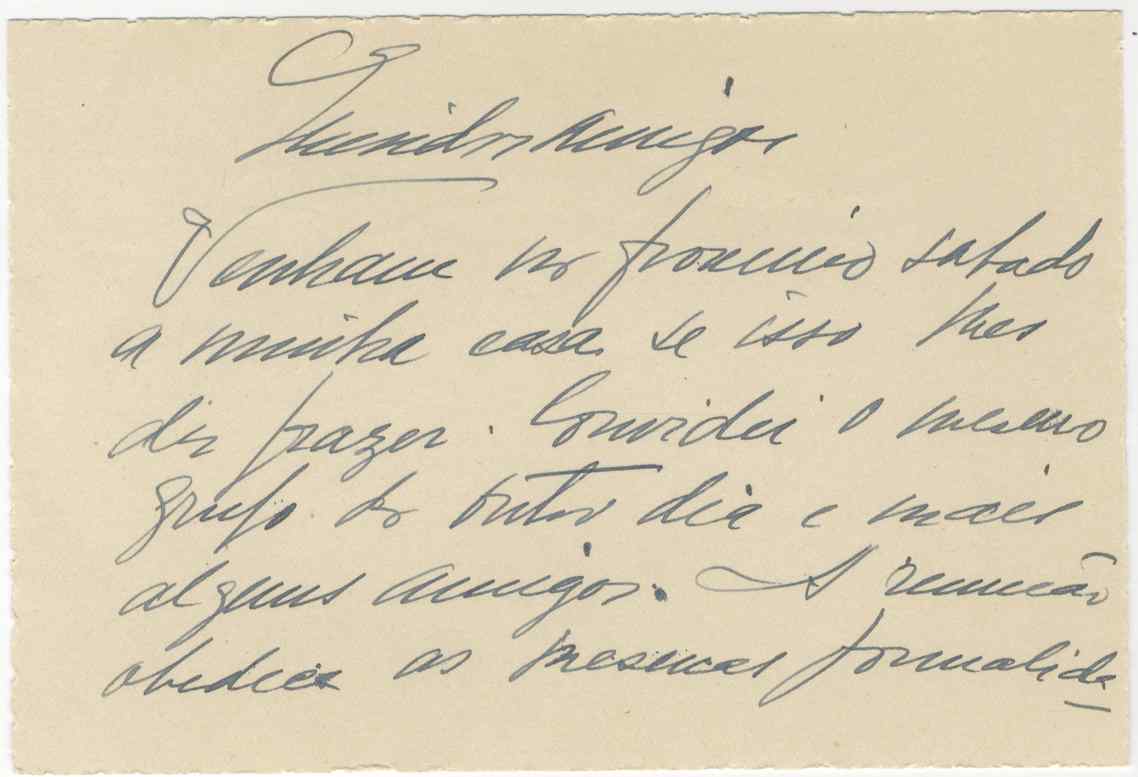 Queridos amigos
Venham no proximo sabado
a minha casa se isso lhes
der prazer. Convidei o mesmo
grupo do outro dia e mais
alguns amigos. A reunião
obedece as mesmas formalida